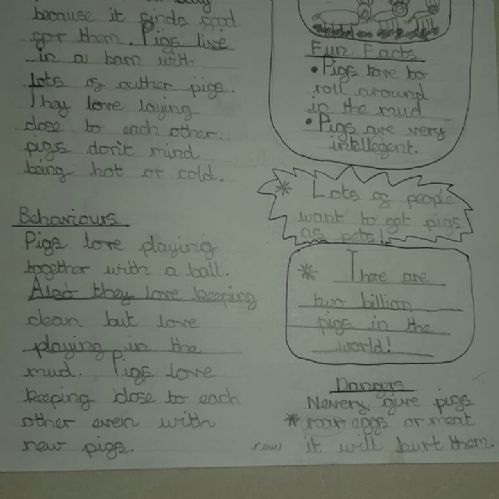 because it finds food
for them. Pigs live
in a barn with
lots of outher pigs.
They love laying
close to each other.
pigs don't mind
being hot or cold.
Behaviours
Pigs love playing
together with a ball.
Also they love keeping
clean but love
playing in the
mud. Pigs love
keeping close to each
other even with
new pigs.
Fun Facts
• Pigs love to
roll around
in the mud
• Pigs are very
intellegent.
* Lots of people
want to get pigs
as pets!
* There are
two billion
pigs in the
world!
Dangers
Nevery give pigs
* eggs or meat
raw it will hurt them.